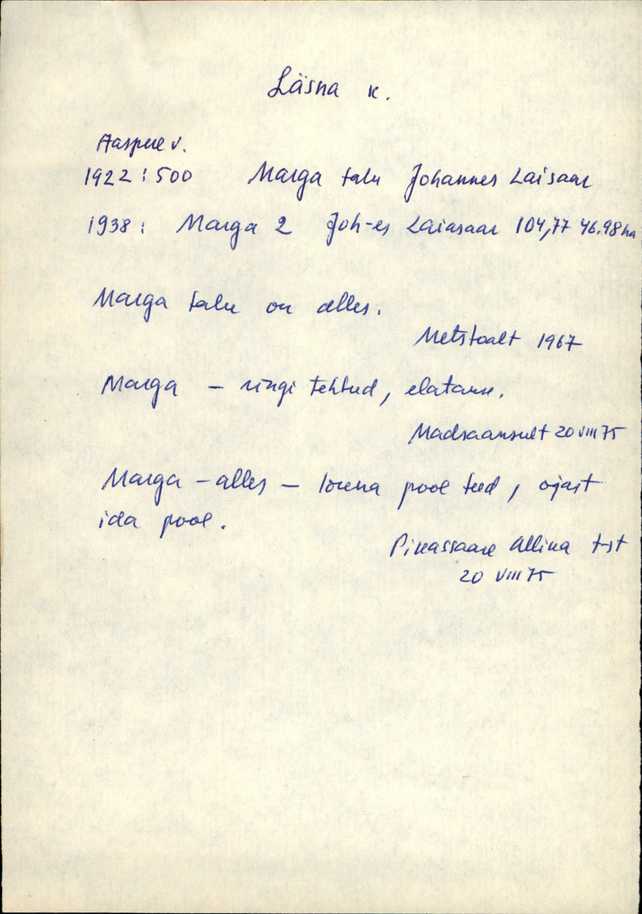 Läsna k.
Aaspere v.
1922: 500 Marga talu Johannes Laisaar
1938: Marga 2 Joh-es Laiasaar 104,77 46.98 ha
Marga talu on alles.
Metstaalt 1967
Marga – ringi tehtud, elatakse.
Madisaansult 20 VIII 75
Marga – alles – lõuna pool teed, ojast
ida pool.
Pikassaare Allika tst
20 VIII 75